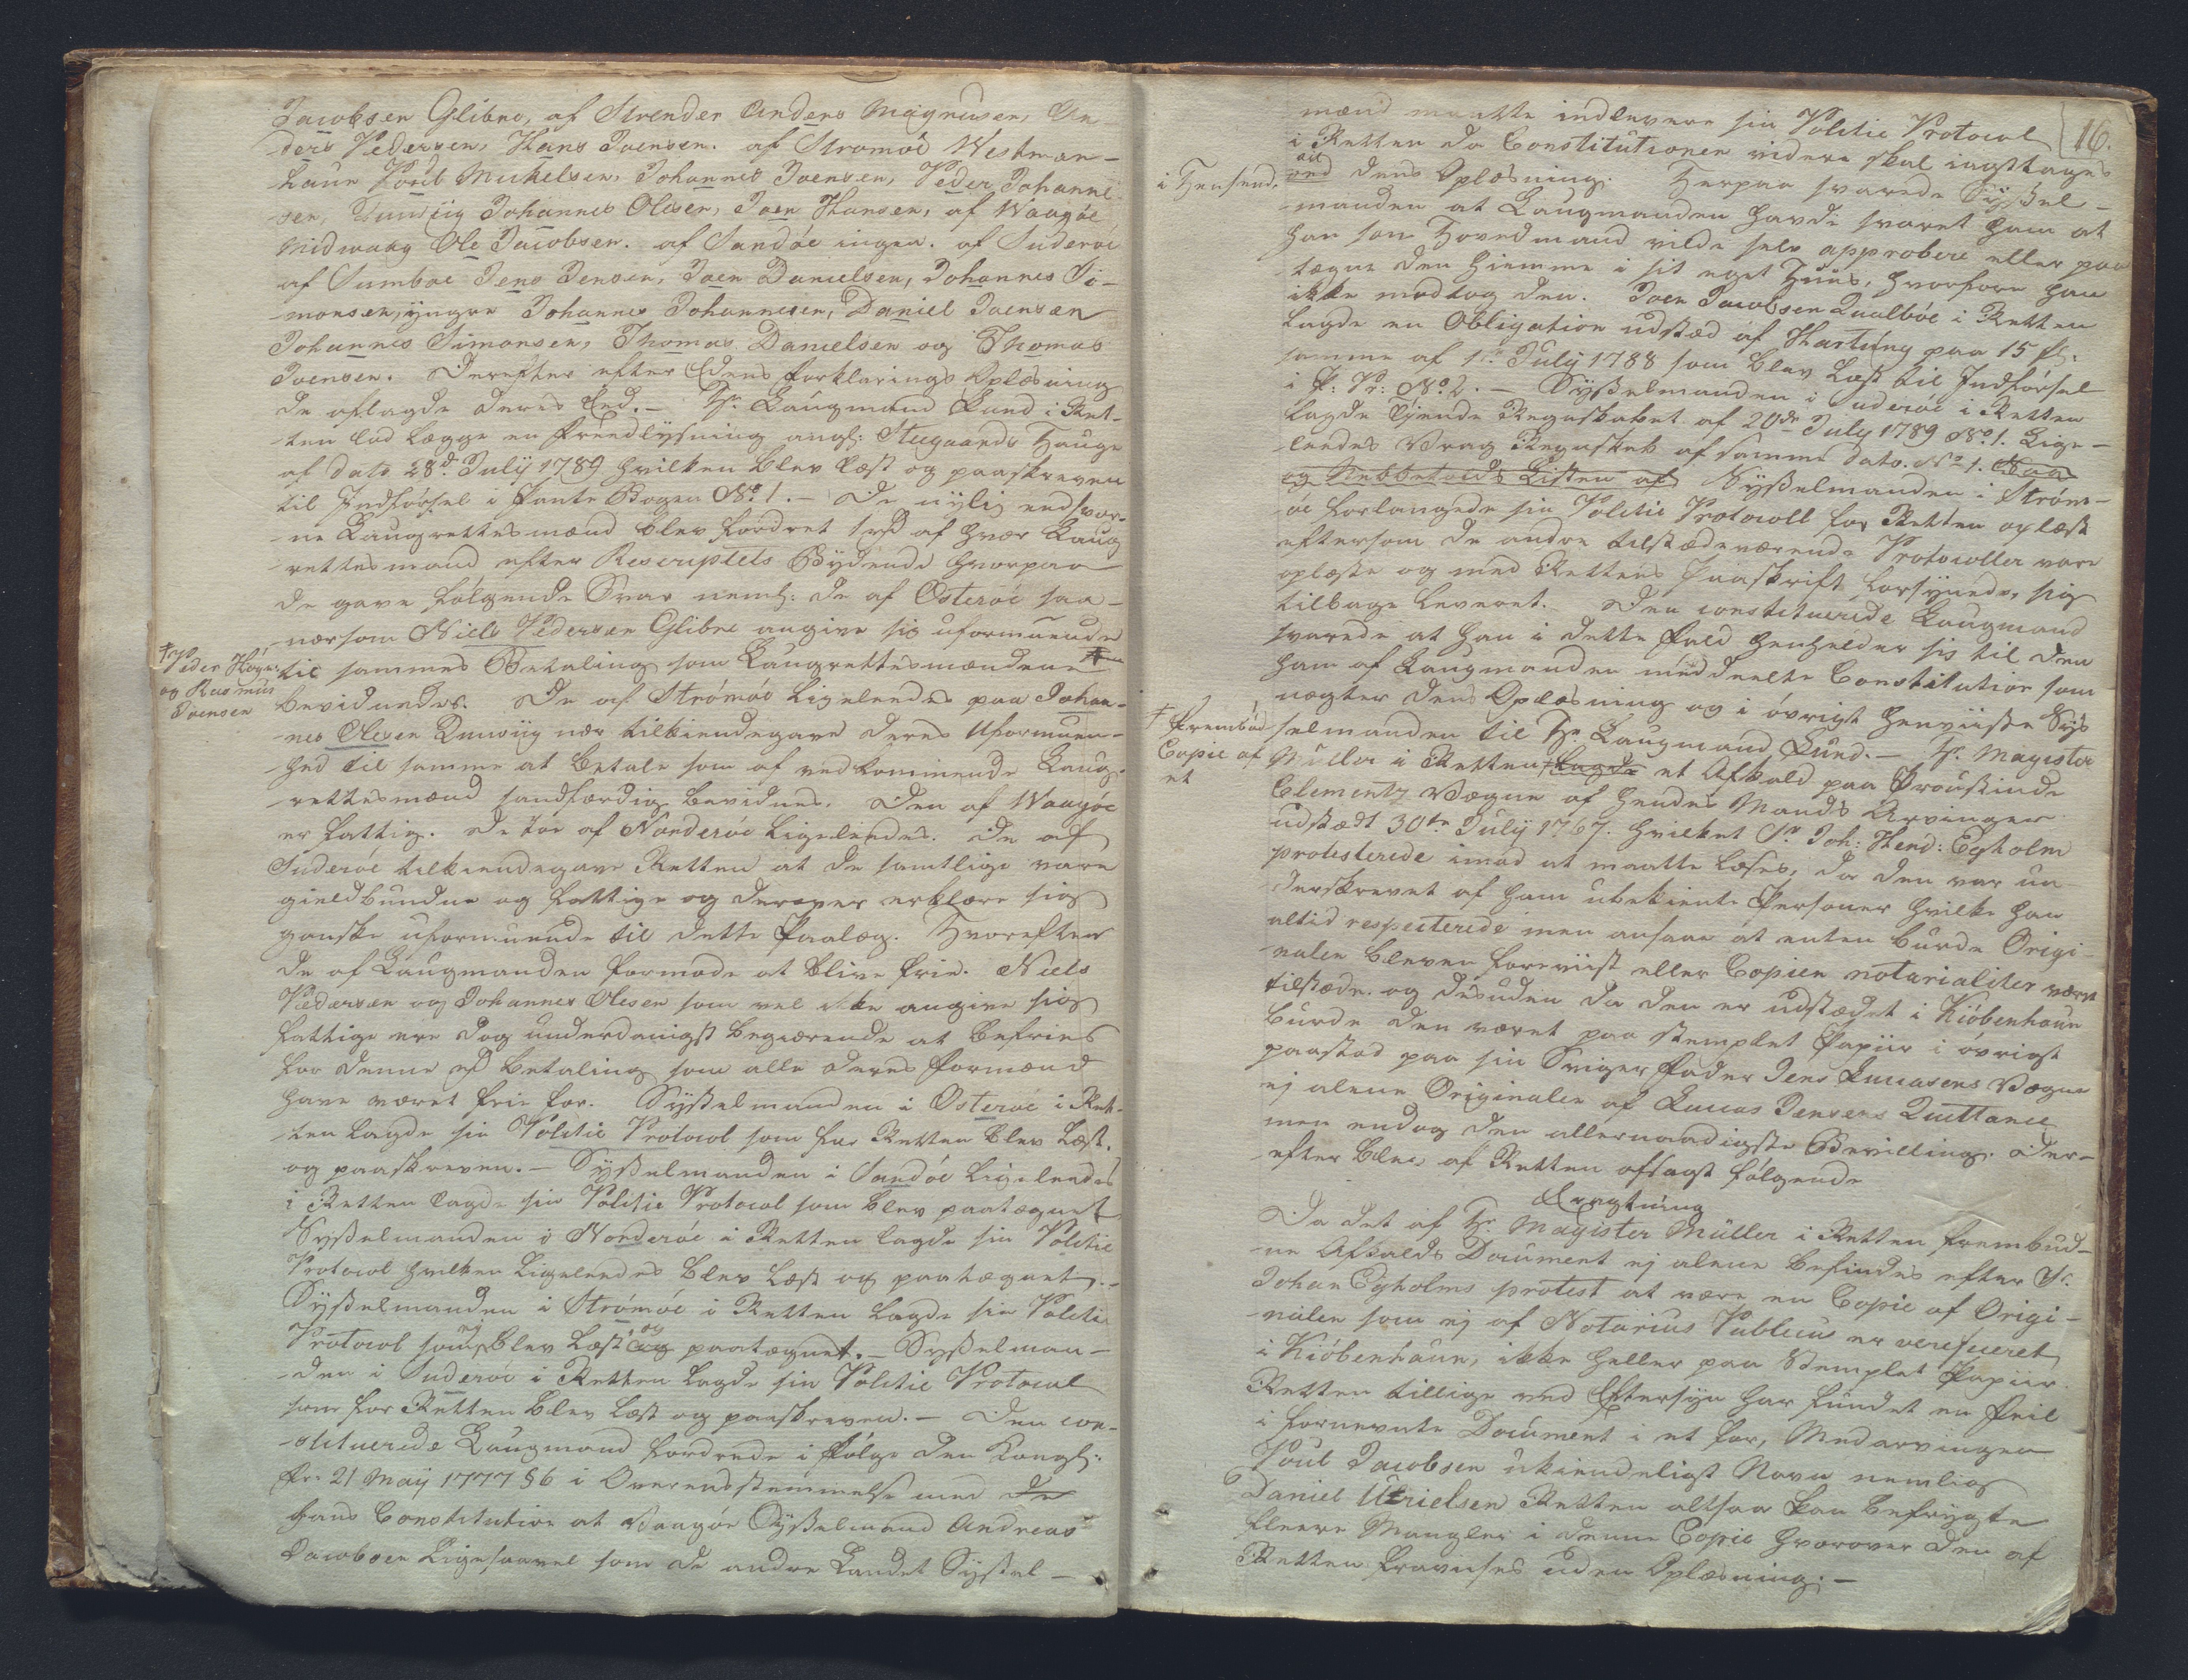 Jacobsen Glibre, af Strender Anders Magnusen, An
ders Pedersen, Hans Joensen. af Stromöe Westman-
haun Poul Michelsen, Johannes Joensen, Peder Johanne-
sen, Qunsiig Johannes Olesen, Joen Hansen, af Waagöe
Midwaag Ole Jacobsen. af Sandöe ingen. af Suderöe
af Sumböe Jens Jensen, Joen Danielsen, Johannes Si-
monsen, yngre Johannes Johannesen, Daniel Joensen
Johannes Simonsen, Thomas Danielsen og Thomas
Joensen. Derefter efter Edens forklarings Oplæsning
de aflagde deres Eed. - Hr. Laugmand Lund i Ret-
ten lod lægge en fredlysning angl: Steegaards Hauge
af dato 28d. Julij 1789 hvilken blev læst og paaskreven
til Indförsel i Pante Bogen No. 1. - De nylig eedsvor-
ne Laugrettesmænd blev fordret 1 rd af hver Laug
rettesmand efter Rescriptets Bydende hvorpaa
de gave fölgende Svar neml: de af Osteröe saa-
nærsom Niels Pedersen Glibre angive sig uformuende
til sammes Betaling som Laugrettesmændene
† Peder Hogn:
og Rasmus
Joensen
bevidnede. De af Strömöe ligeledes paa Johan-
nes Olesen Qunsiig nær tilkiendegave deres Uformuen-
hed til samme at betale som af vedkommende Laug-
rettesmænd sandfærdig bevidnes. Den af Waagöe
er fattig. De toe af Norderöe ligeledes. De af
Suderöe tilkiendegave Retten at de samtlige vare
gieldbundne og fattige og derover erklære sig
ganske uformuende til dette Paalæg. Hvorefter
de af Laugmanden formode at blive frie. Niels
Pedersen og Johannes Olesen som vel ikke angive sig
fattige ere dog underdanigst begiærende at befries
for denne Betaling som alle deres formænd
have været frie for. Sysselmanden i Osteröe i Ret-
ten lagde sin Politie Protocol som for Retten blev læst.
og paaskreven. - Sysselmanden i Sandöe ligeledes
i Retten lagde sin Politie Protocol som blev paategnet
Sysselmanden i Norderöe i Retten lagde sin Politie
Protocol hvilken ligeledes blev læst og paategnet. -
Sysselmanden i Strömöe i Retten lagde sin Politie
Protocol som ej blev læst og paategnet. - Sysselman-
den i Suderöe i Retten lagde sin Politie Protocol
som for Retten blev læst og paaskreven. - Den con-
stituerede Laugmand fordrede i fölge den Kongl:
Fr: 21 Maij 1777 § 6 i Overensstemmelse med de
hans Constitution at Waagöe Sysselmand Andreas
Jacobsen ligesaavel som de andre Landet Syssel-
16.
mænd maatte indlevere sin Politie Protocol
i Retten da Constitutionen videre skal iagttages
i Henseende
ved dens Oplæsning. Herpaa svarede Syssel-
manden at Laugmanden havde svaret ham at
han som Hovedmand vilde selv approbere eller paa
tegne den hiemme i sit eget Huus, hvorfore han
ikke modtog den. Joen Jacobsen Qualböe i Retten
lagde en Obligation udstæd af Hartung paa 15 f.
samme af 1te July 1788 som blev læst til Indförsel
i P: Pr: No. 2. - Sysselmanden i Suderöe i Retten
lagde Tiende Regnskabet af 20de July 1789 No. 1. Lige-
ledes Vrag Regnskab af samme dato. No. 1.
Sysselmanden i Ström-
öe forlangede sin Politie Protocoll for Retten oplæst
eftersom de andre tilstædeværende Protocoller vare
oplæste og med Rettens Paaskrift forsynede, sig
tilbage leveret. Den constituerede Laugmand
svarede at han i dette fald henholder sig til den
ham af Laugmanden meddeelte Constitution som
nægter dens Oplæsning og i övrigt henviiste Sys
selmanden til Hr. Laugmand Lund. - Hr. Magister
† frembød
Copie af
et
Müller i Retten lagde et Afkald paa Provstinde
Clementz Vegne af hendes Mands Arvinger
udstædt 30te July 1767. hvilket Sr. Joh: Hend: Egholm
protesterede imod at maatte læses, da den var un
derskrevet af ham ubekiente Personer hvilke han
altid respecterede men ansaae at enten burde Origi-
nalen bleven foreviist eller Copien notarialiter være
tilstæde. og desuden da den er udstædet i Kiöbenhaun
burde den været paa stemplet Papiir i övrigt
paastod paa sin Sviger fader Jens Lucasens Vegne
ej alene Originalen af Lucas Jensens Quittance
men endog den allernaadigste Bevilling. Der-
efter blev af Retten afsagt fölgende
Eragtning
Da det af Hr. Magister Müller i Retten frembud-
ne Afkalds Document ej alene befindes efter Sr.
Johan Egholms protest at være en Copie af Origi-
nalen som ej af Notarius Publicus er verificeret
i Kiöbenhaun, ikke heller paa Stemplet Papiir.
Retten tillige ved Eftersyn har fundet en Feil
i fornevnte Document i et for, Medarvingen
Poul Jacobsen ukiendeligt Navn nemlig
Daniel Utrielsen Retten altsaa kan befrygte
fleere Mangler i denne Copie hvorover den af
Retten fraviises uden Oplæsning. -